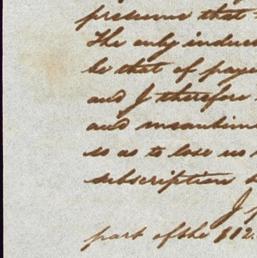 presume that
The only induc
be that of paye
and I therefore
and meantime
so as to lose us
subscription
I
part of the 802.